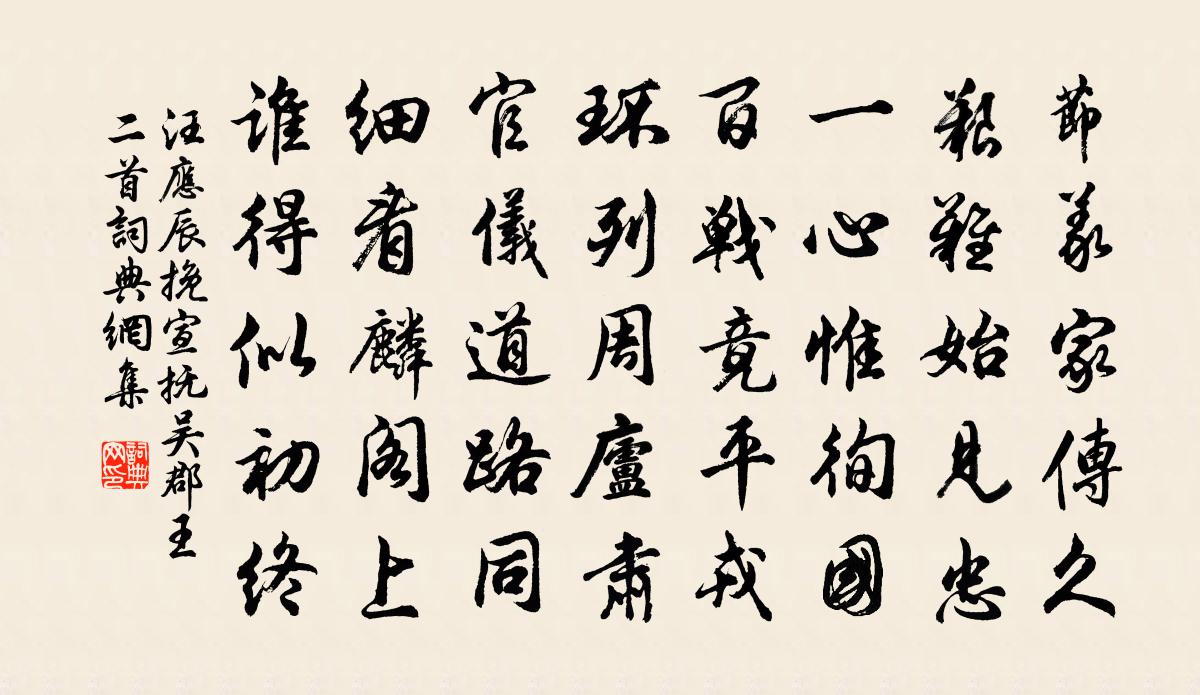 節義家傳久
艱難始見忠
一心惟徇國
百戰竟平戎
環列周廬肅
官儀道路同
細看麟閣上
誰得似初終
汪應辰挽宣撫吳郡王
二首詞典網集
詞典
网印